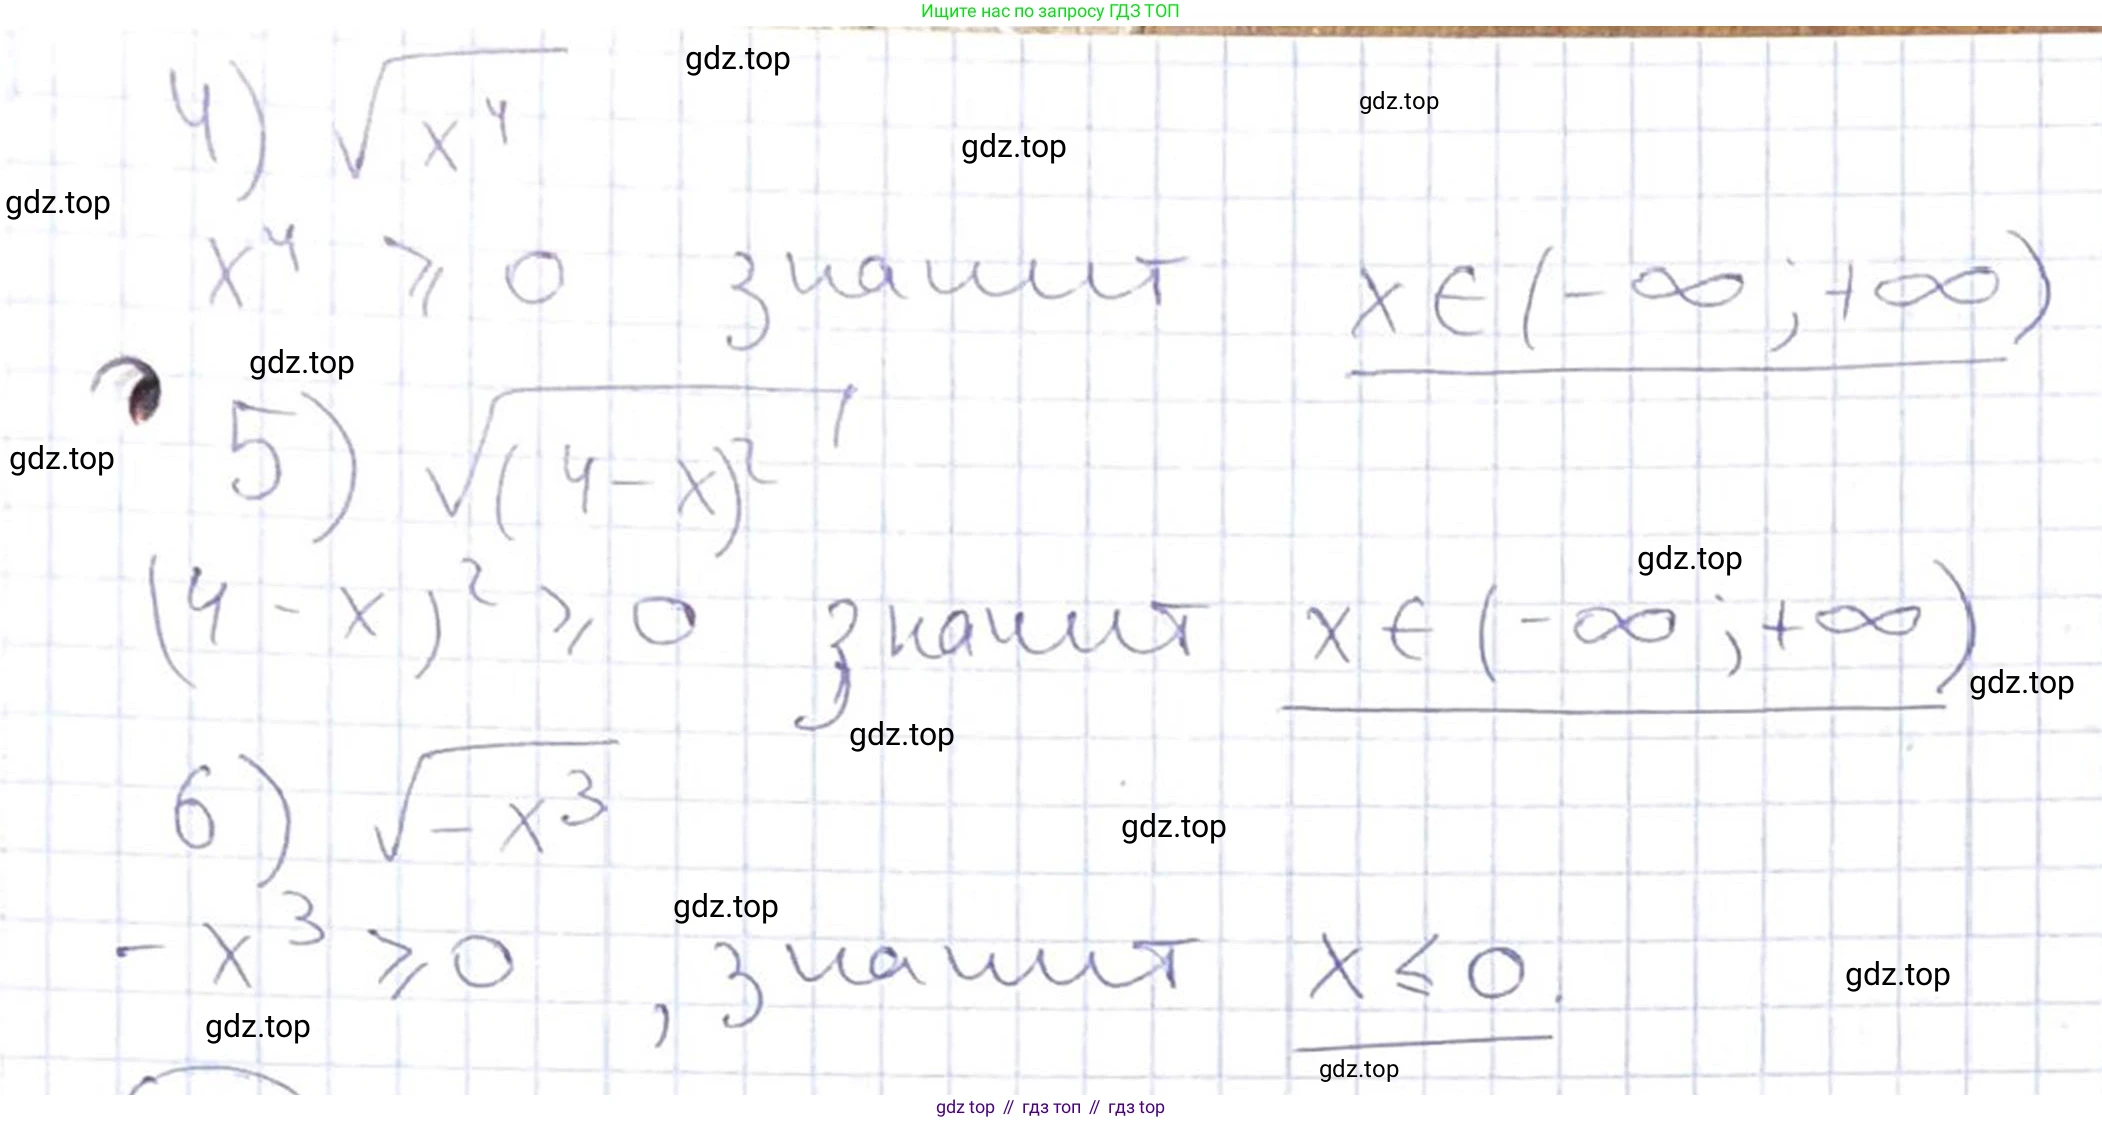 Ищите нас по запросу ГДЗ ТОП
gdz.top
gdz.top
4) √x⁴
gdz.top
gdz.top
x⁴ ⩾ 0 значит x ∈ (-∞; +∞)
gdz.top
5) √(4-x)²
gdz.top
gdz.top
(4-x)² ⩾ 0 значит x ∈ (-∞; +∞)
gdz.top
gdz.top
6) √-x³
gdz.top
gdz.top
-x³ ⩾ 0, значит x ≤ 0.
gdz.top
gdz.top
gdz.top
gdz top // гдз топ // gdz top